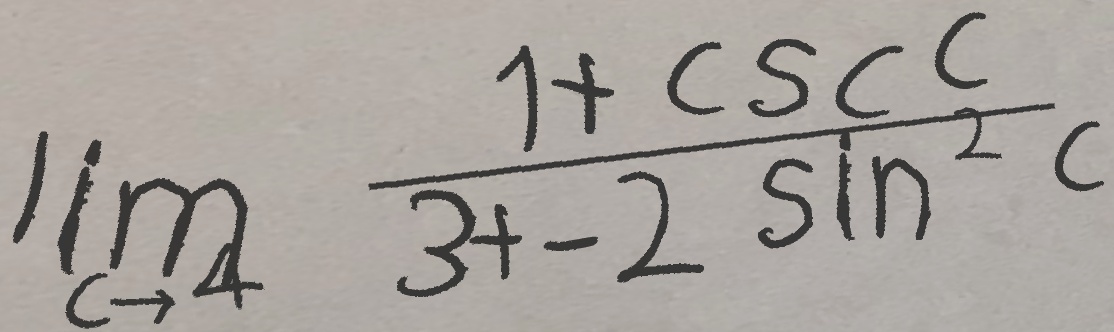 \lim_{c \to 4} \frac{1 + \csc c}{3 + -2 \sin^2 c}